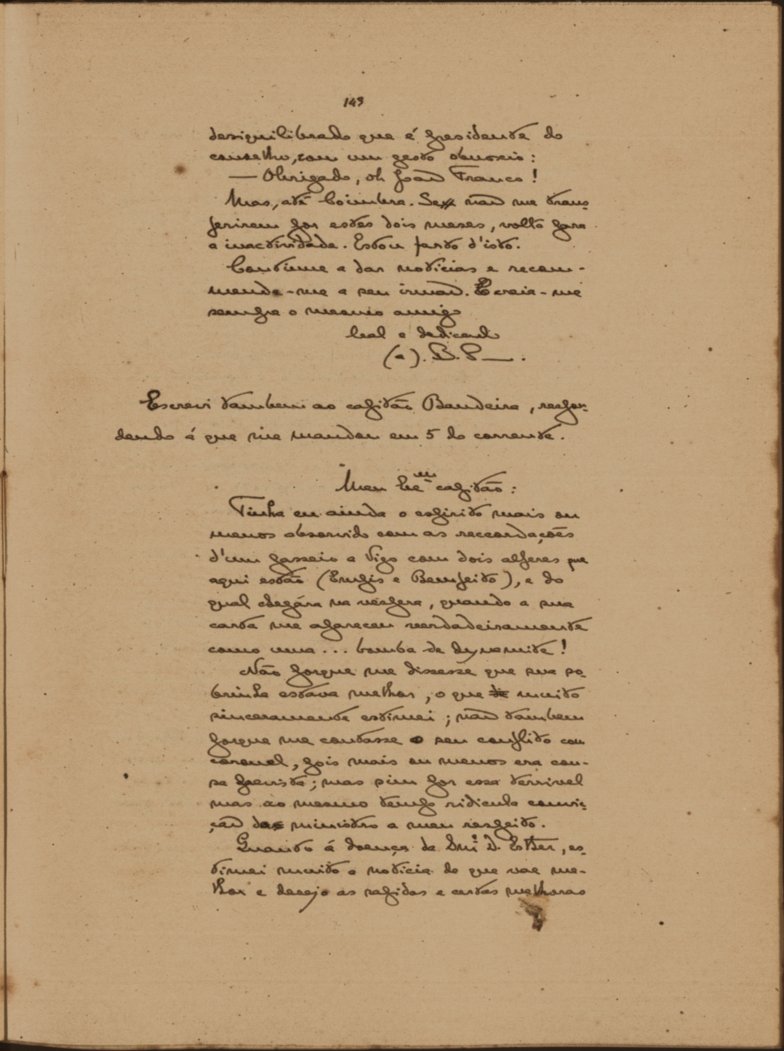 143
desiquilibrado que é presidente do
conselho, com um gesto obnoxio:
— Obrigado, oh João Franco!
Mas, até Coimbra. Se não me trans-
ferirem por estes dois meses, volto para
a inactividade. Estou farto d'isto.
Continue a dar noticias e recom-
mende-me a seu irmão. E creia-me
sempre o mesmo amigo
leal e dedicado
(a). B. P—.
Escrevi tambem ao capitão Bandeira, respon-
dendo á que me mandou em 5 do corrente.
Meu capitão:
Tinha eu ainda o espirito mais ou
menos absorvido com as reccordações
d'um passeio a Vigo com dois alferes que
aqui estão (e Bemfeito), e do
qual chegára na vespera, quando a sua
carta me appareceu verdadeiramente
como uma... bomba de dynamite!
Não porque me dissesse que sua so-
brinha estava melhor, o que muito
sinceramente estimei; não tambem
porque me contasse o seu conflito com
coronel, pois mais ou menos era cou-
sa prevista; mas sim por essa terrivel
mas ao mesmo tempo ridicula convic-
ção do ministro a meu respeito.
Quanto á doença da D. Esther, es-
timei muito a noticia de que vae me-
lhor e desejo as rapidas e certas melhoras